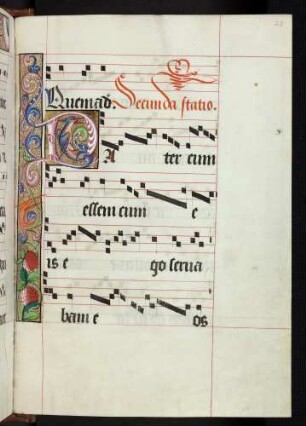 Quemad. Secunda statio.
PAter cum
essem cum e
is e go serua
bam e os